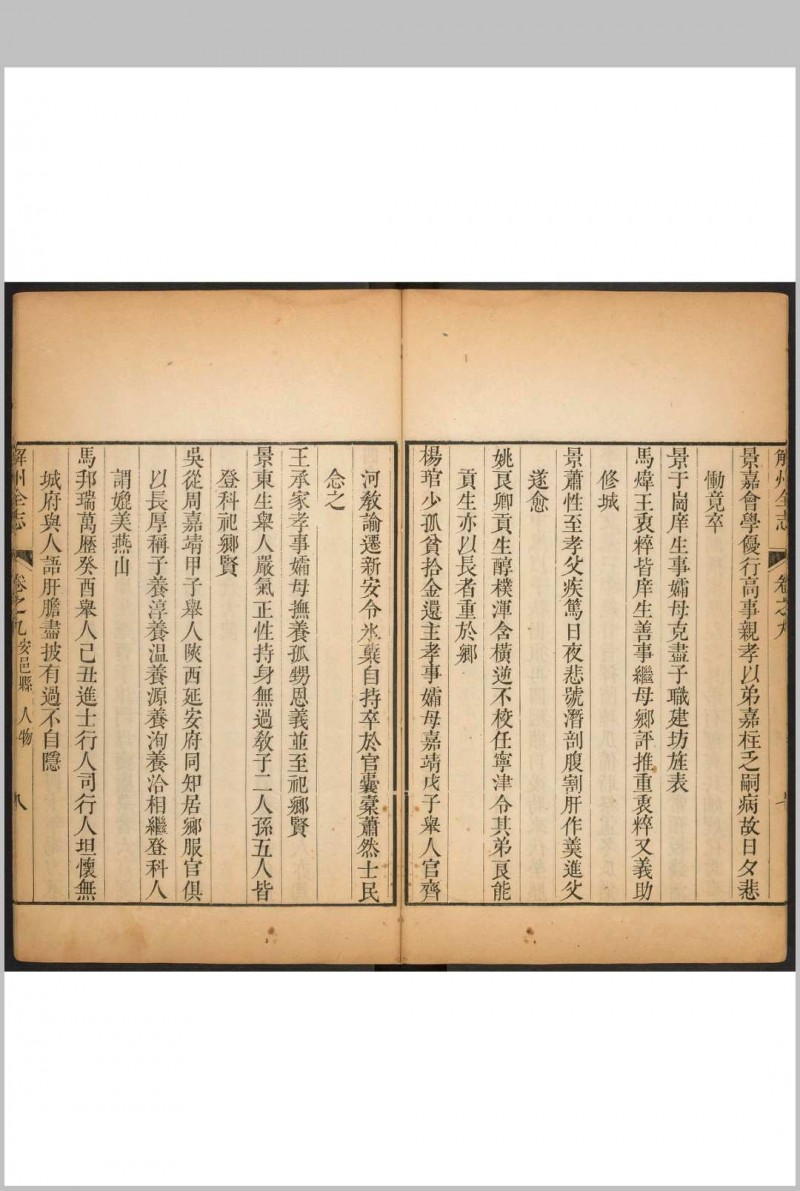 解州全志 卷之九
景嘉會學優行高事親孝以弟嘉柱乏嗣病故日夕悲
慟竟卒
景于崗庠生事孀母克盡子職建坊旌表
馬煒王衷粹皆庠生善事繼母鄉評推重衷粹又義助
修城
景蕭性至孝父疾篤日夜悲號潛剖腹割肝作羹進父
遂愈
姚良卿貢生醇樸渾含橫逆不校任寧津令其弟良能
貢生亦以長者重於鄉
楊琯少孤貧拾金還主孝事孀母嘉靖戊子舉人官齊
河教諭遷新安令氷蘗自持卒於官囊橐蕭然士民
念之
王承家孝事孀母撫養孤甥恩義並至祀鄉賢
景東生舉人嚴氣正性持身無過教子二人孫五人皆
登科祀鄉賢
吳從周嘉靖甲子舉人陝西延安府同知居鄉服官俱
以長厚稱子養淳養温養源養洵養洽相繼登科人
謂媲美燕山
馬邦瑞萬歷癸酉舉人己丑進士行人司行人坦懷無
城府與人語肝膽盡披有過不自隱
解州全志 卷之九 安邑縣 人物 八